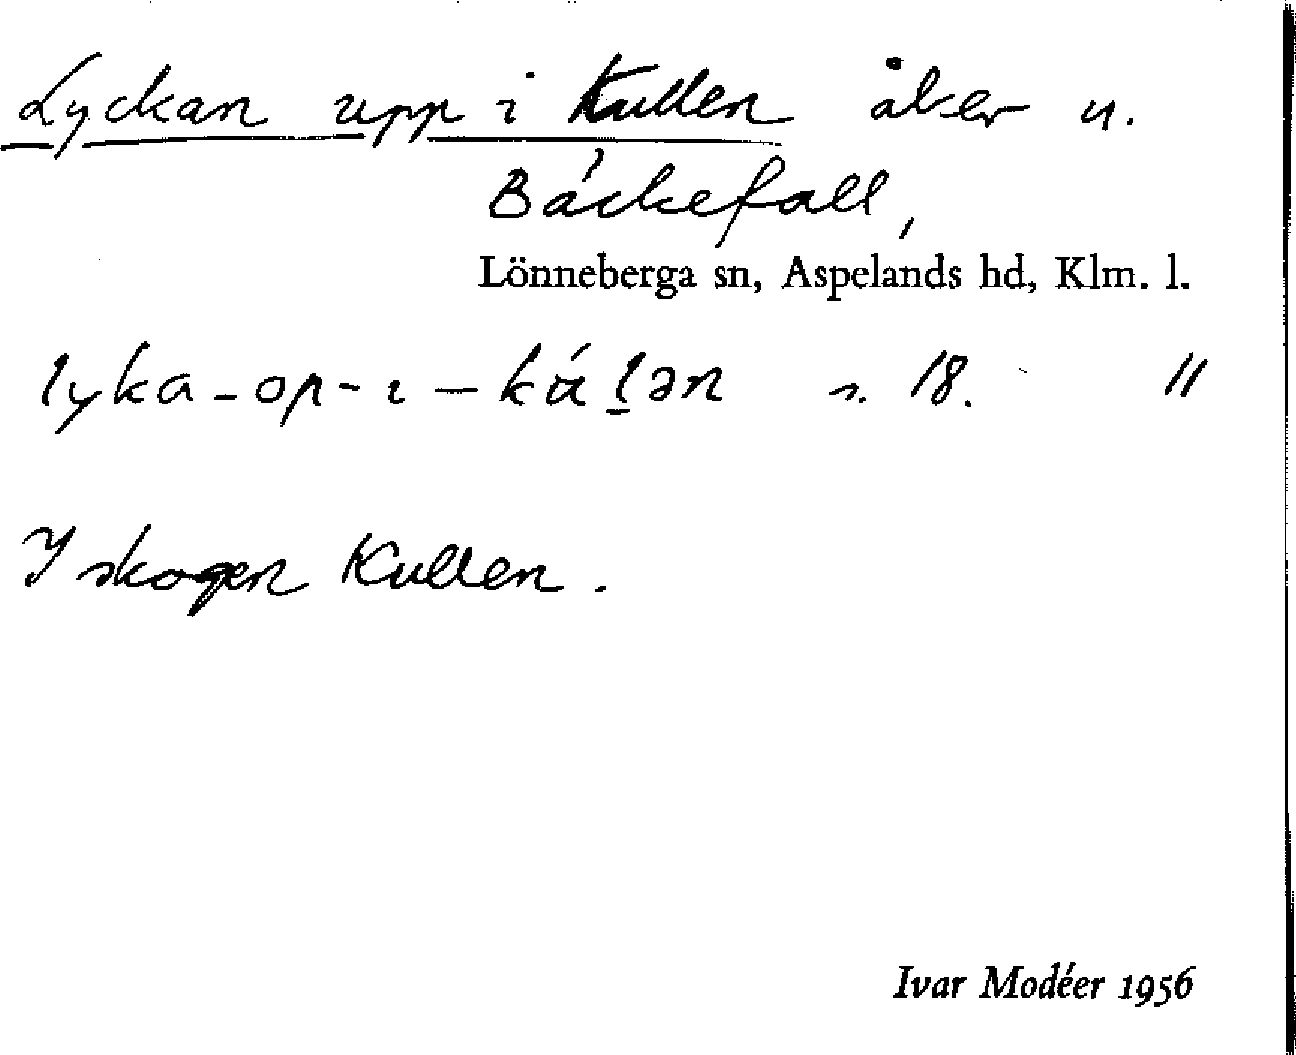 Lyckan upp i Kullen åker u.
Bäckefall,
Lönneberga sn, Aspelands hd, Klm. l.
lyka-op-ı-kúl̠ən s. 18. "
I skogen Kullen.
Ivar Modéer 1956